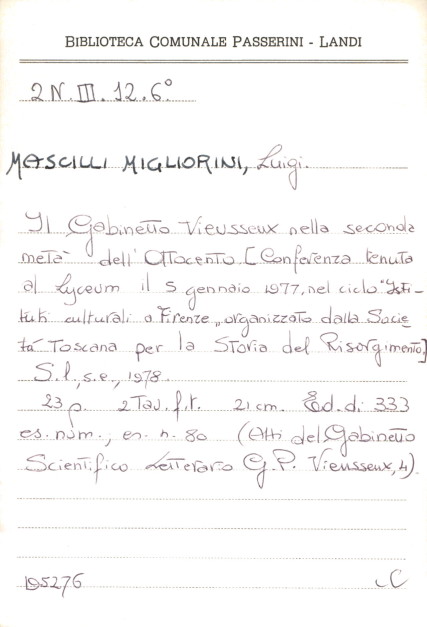 BIBLIOTECA COMUNALE PASSERINI - LANDI
2 N. III. 12. 6°
MASCILLI MIGLIORINI, Luigi.
Il Gabinetto Vieusseux nella seconda
metà dell'Ottocento. [Conferenza tenuta
al Lyceum il 5 gennaio 1977, nel ciclo "Isti-
tuti culturali a Firenze„ organizzato dalla Socie-
tà Toscana per la Storia del Risorgimento]
S.l., s.e., 1978.
23 p. 2 Tav. f.t. 21 cm. Ed. di 333
es. num., es. n. 80 (Atti del Gabinetto
Scientifico Letterario G.P. Vieusseux, 4).
195276 C